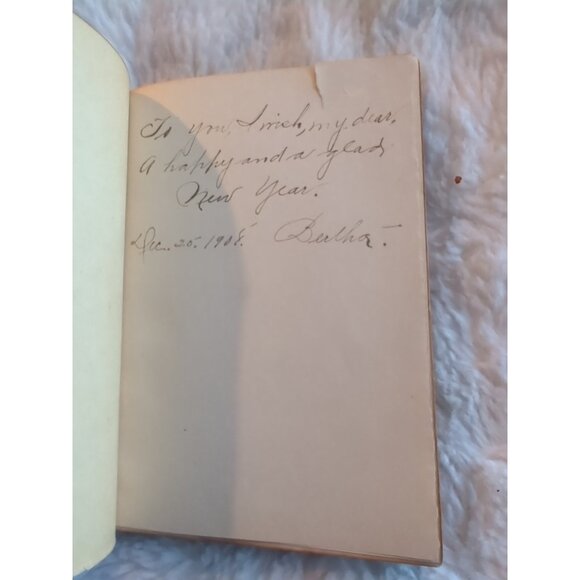 To you, I wish, my dear,
A happy and a glad
New Year.
Dec. 25. 1908. Bertha.